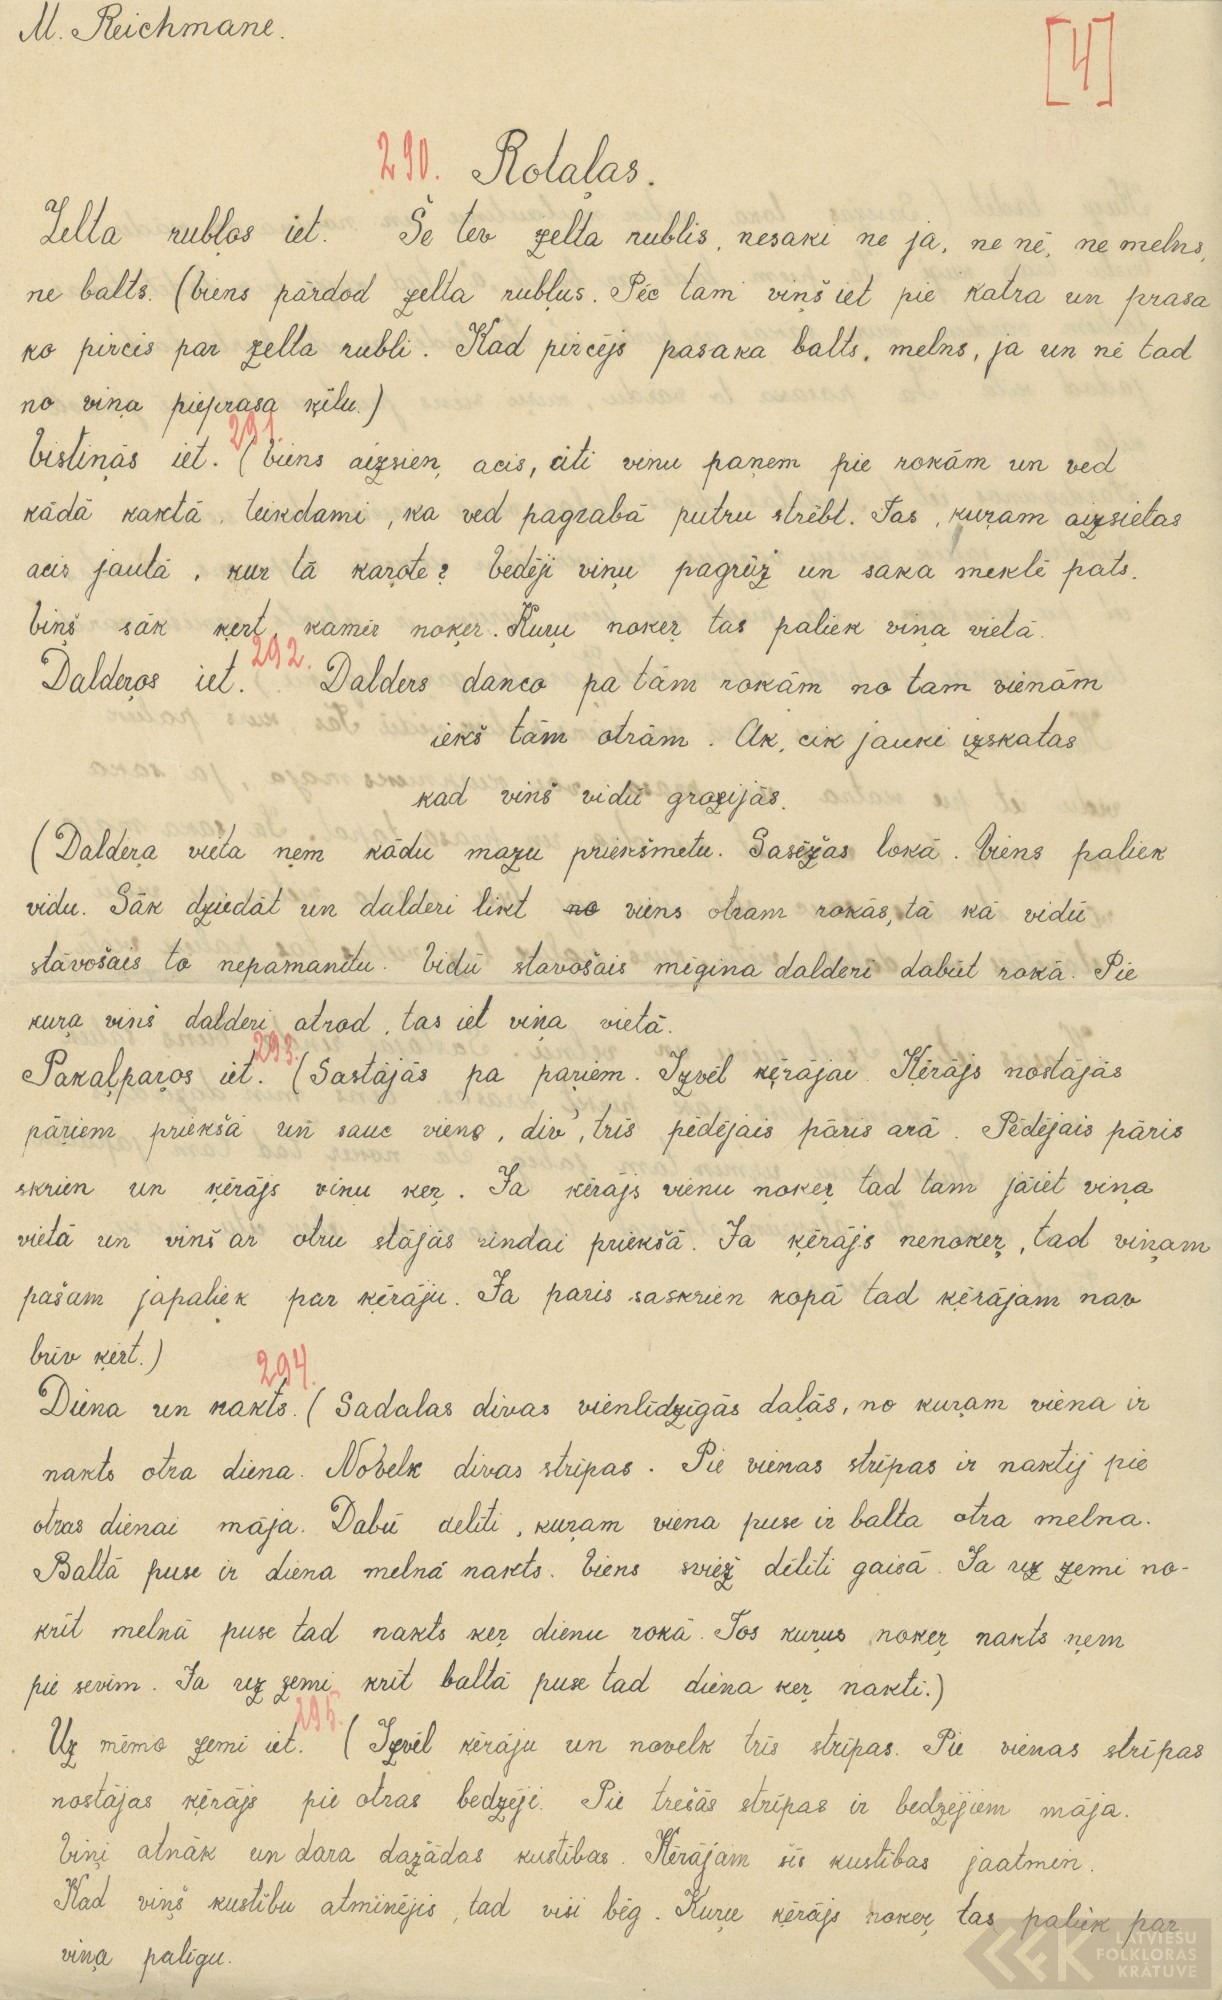 M. Reichmane.
[4]
290. Rotaļas.
Zelta rubļos iet. Še tev zelta rublis, nesaki ne ja, ne nē, ne melns,
ne balts. (Viens pārdod zelta rubļus. Pēc tam viņš iet pie katra un prasa
ko pircis par zelta rubli. Kad pircējs pasaka balts, melns, ja un nē tad
no viņa pieprasa ķīlu.)
291.
Vistiņās iet. (Viens aizsien acis, citi viņu paņem pie rokām un ved
kādā kaktā, teikdami, ka ved pagrabā putru strēbt. Tas, kuŗam aizsietas
acis jautā, kur tā kaŗote? Vedēji viņu pagrūž un saka meklē pats.
Viņš sāk ķert, kamēr noķer. Kuŗu noķeŗ tas paliek viņa vietā.
292.
Daldeŗos iet. Dalders danco pa tām rokām no tam vienām
iekš tām otrām. Ak, cik jauki izskatas
kad viņš vidū grozijās.
(Daldeŗa vietā ņem kādu mazu priekšmetu. Sasēžas lokā. Viens paliek
vidu. Sāk dziedāt un dalderi likt no viens otram rokās, tā kā vidū
stāvošais to nepamanītu. Vidū stavošais mēgina dalderi dabūt rokā. Pie
kuŗa viņš dalderi atrod, tas iet viņa vietā.
293.
Pakaļpaŗos iet. (Sastājās pa paŗiem. Izvēl ķērājai Ķērājs nostājās
pāŗiem priekšā un sauc viens, div', trīs pēdējais pāris arā. Pēdējais pāris
skrien un ķērājs viņu ķeŗ. Ja ķērājs vienu noķeŗ tad tam jāiet viņa
vietā un viņš ar otru stājās rindai priekšā. Ja ķērājs nenoķeŗ, tad viņam
pašam japaliek par ķērāju. Ja paris saskrien kopā tad ķērājam nav
brīv ķert.)
294.
Diena un nakts. (Sadalas divas vienlīdzīgās daļās, no kuŗam viena ir
nakts otra diena. Novelk divas strīpas. Pie vienas strīpas ir naktij pie
otras dienai māja. Dabū delīti, kuŗam viena puse ir balta otra melna.
Baltā puse ir diena melnā nakts. Viens sviež dēlīti gaisā. Ja uz zemi no-
krīt melnā puse tad nakts ķeŗ dienu rokā. Tos kuŗus noķeŗ nakts ņem
pie sevim. Ja uz zemi krīt baltā puse tad diena ķeŗ nakti.)
295.
Uz mēmo zemi iet. (Izvēl ķērāju un novelk trīs strīpas. Pie vienas strīpas
nostājas ķērājs pie otras bedzēji. Pie trešās strīpas ir bedzējiem māja.
Viņi atnāk un dara dažādas kustības. Ķērājam šīs kustības jaatmin.
Kad viņš kustību atminējis, tad visi bēg. Kuŗu ķērājs noķeŗ tas paliek par
viņa palīgu.
LATVIEŠU
FOLKLORAS
KRĀTUVE